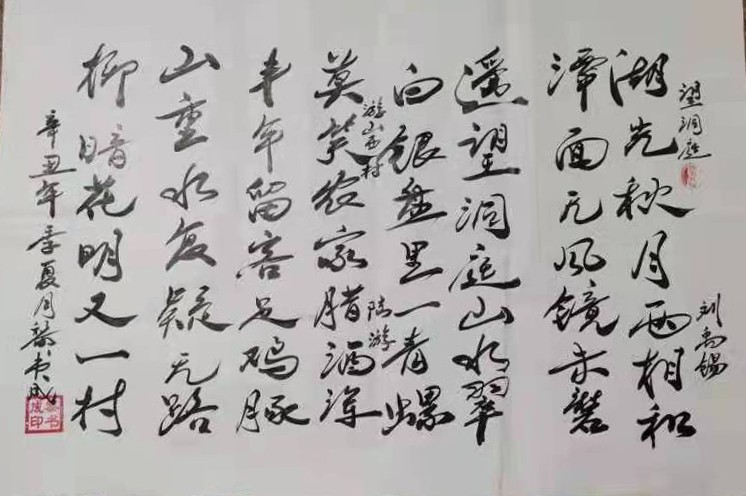 望洞庭
刘禹锡
湖光秋月两相和
潭面无风镜未磨
遥望洞庭山水翠
白银盘里一青螺
游山西村
陆游
莫笑农家腊酒浑
丰年留客足鸡豚
山重水复疑无路
柳暗花明又一村
辛丑年季夏月